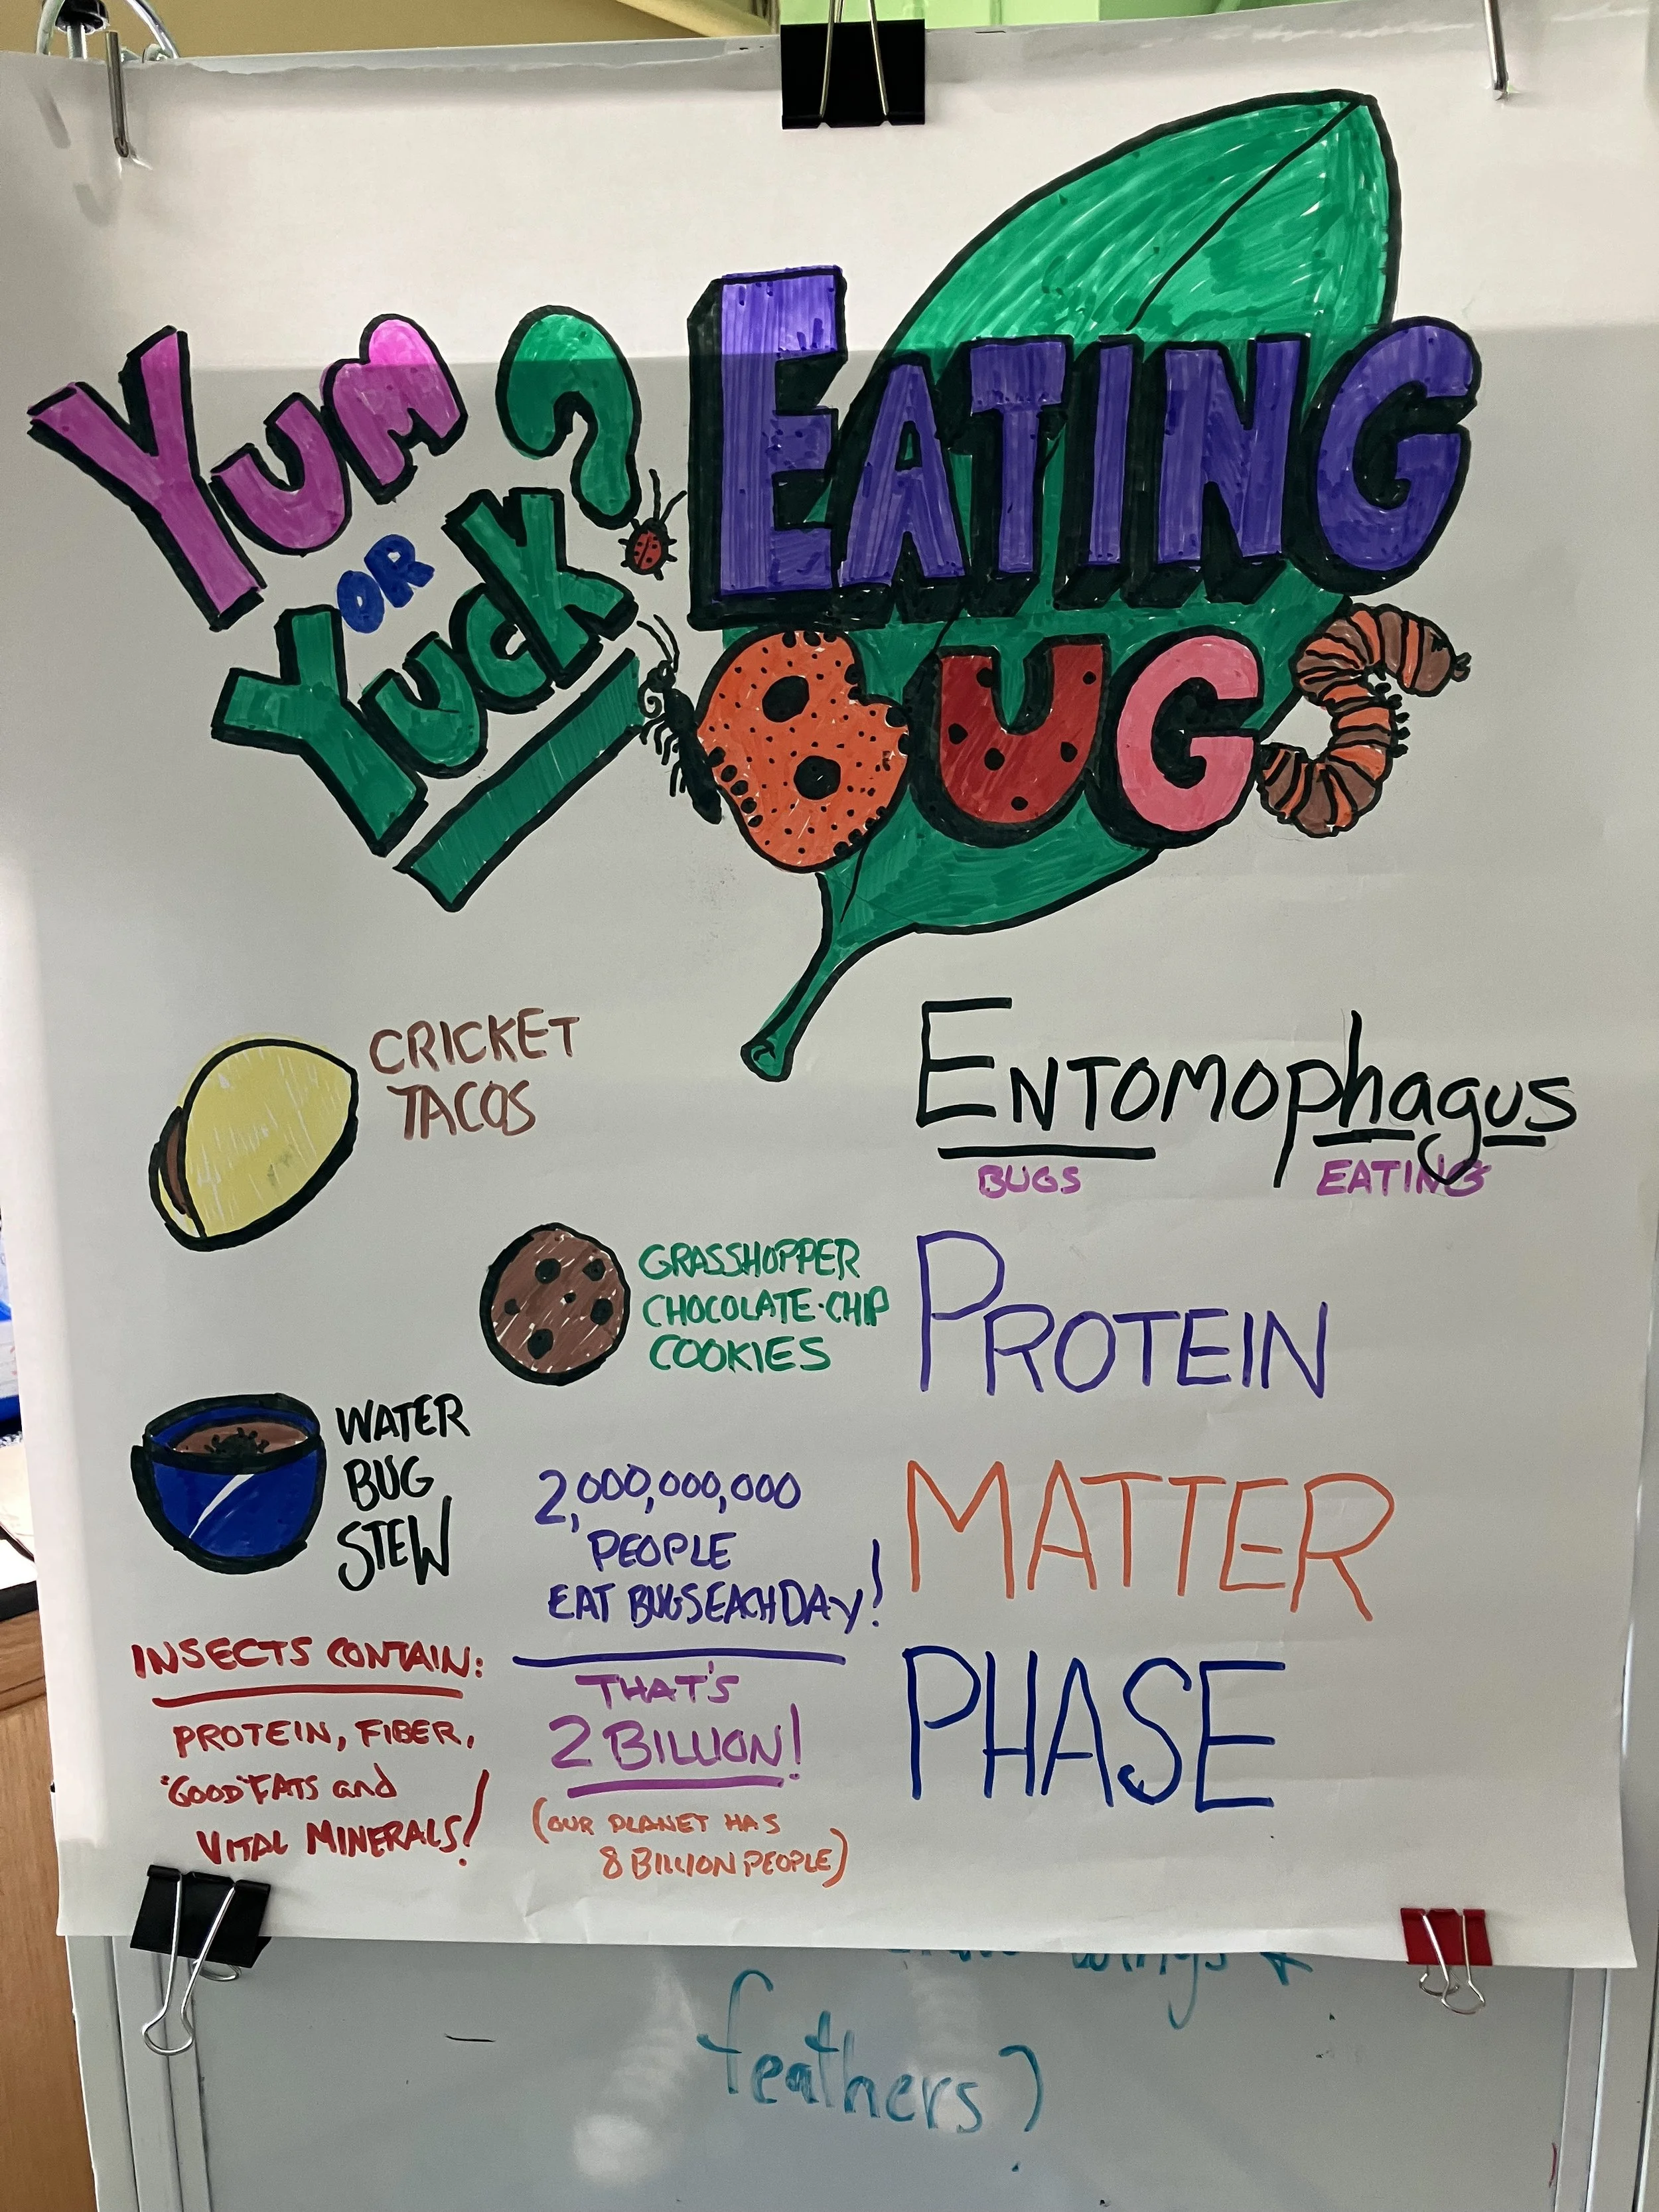 YUM
OR
YUCK?
EATING
BUGS
CRICKET
TACOS
GRASSHOPPER
CHOCOLATE-CHIP
COOKIES
WATER
BUG
STEW
2,000,000,000
PEOPLE
EAT BUGS EACH DAY!
THAT'S
2 BILLION!
(OUR PLANET HAS
8 BILLION PEOPLE)
INSECTS CONTAIN:
PROTEIN, FIBER,
"GOOD" FATS and
VITAL MINERALS!
ENTOMOphagus
BUGS EATING
PROTEIN
MATTER
PHASE
wings
feathers)